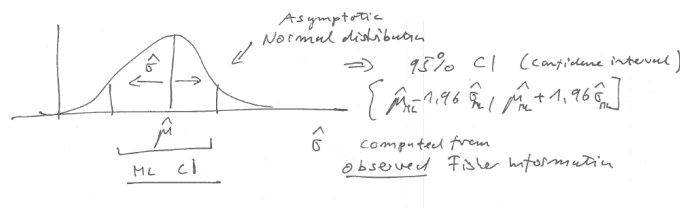 Asymptotic
Normal distribution
⇒ 95% CI (confidence interval)
[μ̂_ML - 1,96 σ̂_ML, μ̂_ML + 1,96 σ̂_ML]
σ̂
μ̂
ML CI
σ̂ computed from
observed Fisher Information